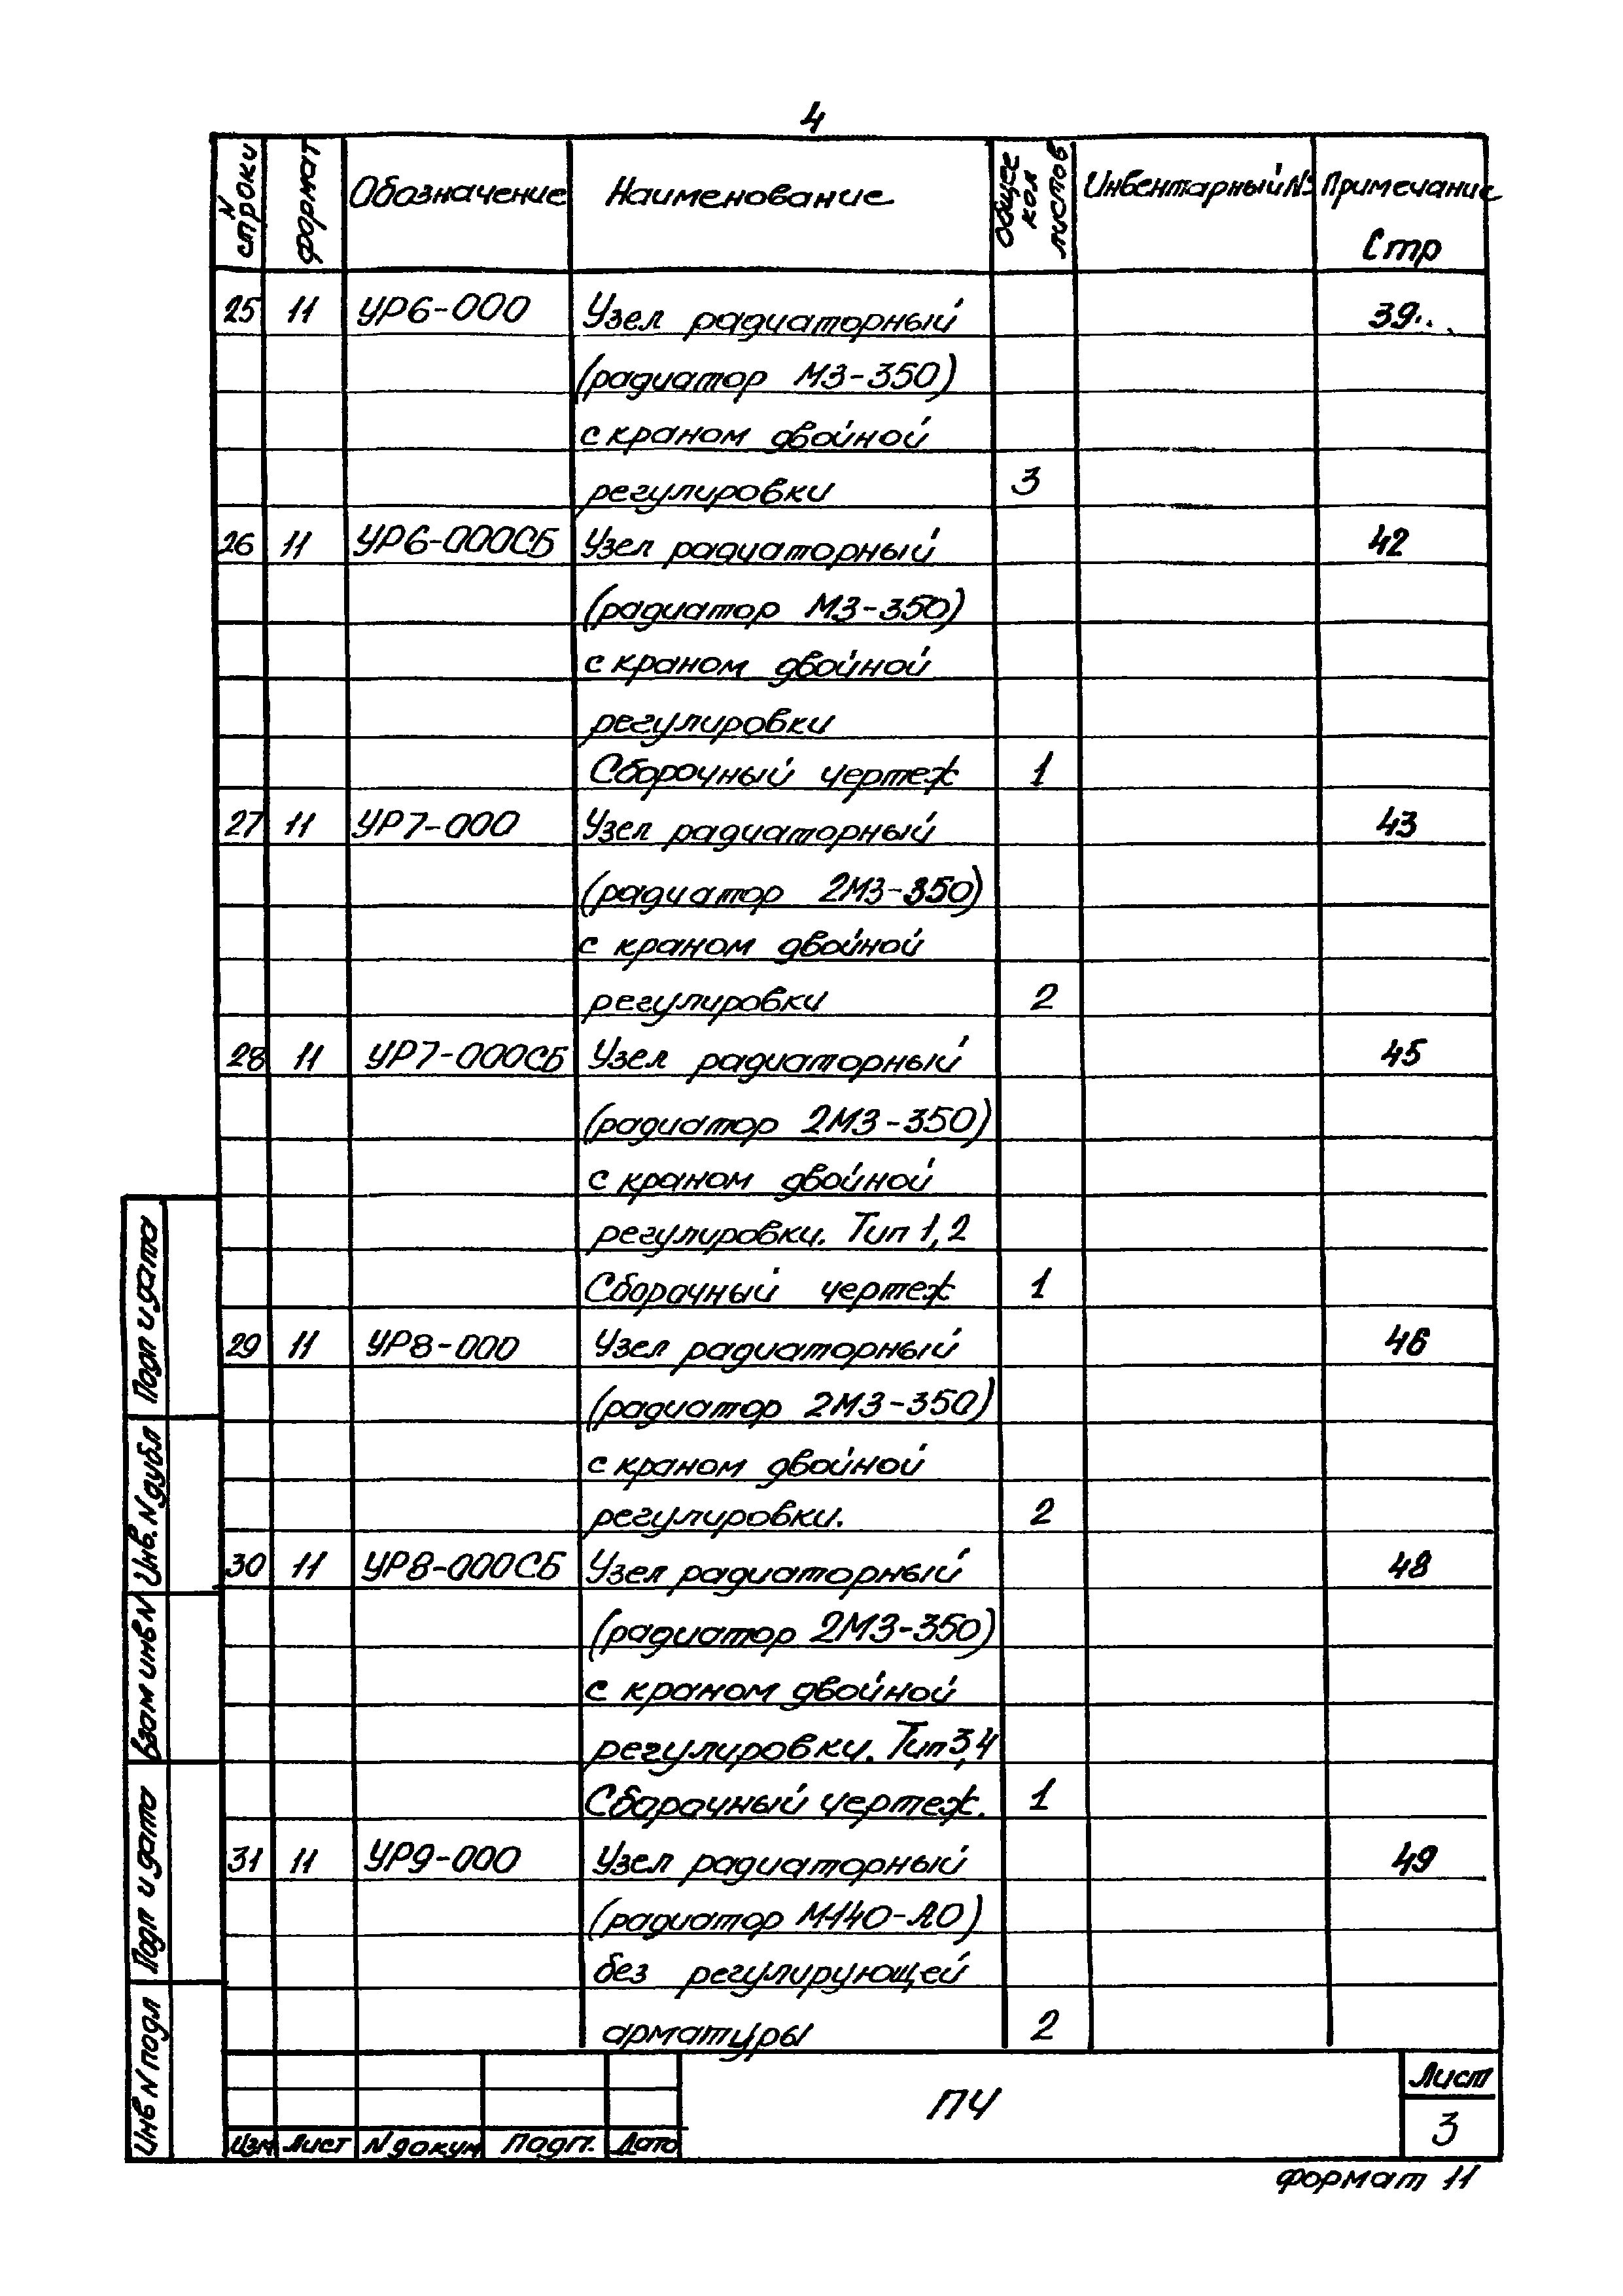 4
N строки формат Обозначение Наименование Общее кол листов Инвентарный № Примечание
Стр
25 11 УР6-000 Узел радиаторный 39
(радиатор М3-350)
с краном двойной
регулировки 3
26 11 УР6-000СБ Узел радиаторный 42
(радиатор М3-350)
с краном двойной
регулировки
Сборочный чертеж 1
27 11 УР7-000 Узел радиаторный 43
(радиатор 2М3-350)
с краном двойной
регулировки 2
28 11 УР7-000СБ Узел радиаторный 45
(радиатор 2М3-350)
с краном двойной
регулировки. Тип 1,2
Сборочный чертеж 1
29 11 УР8-000 Узел радиаторный 46
(радиатор 2М3-350)
с краном двойной
регулировки. 2
30 11 УР8-000СБ Узел радиаторный 48
(радиатор 2М3-350)
с краном двойной
регулировки. Тип 3,4
Сборочный чертеж. 1
31 11 УР9-000 Узел радиаторный 49
(радиатор М140-АО)
без регулирующей
арматуры 2
Подп и дата
Инв. N дубл
Взам инв N
Подп и дата
Инв N подл
Изм Лист N докум Подп. Дата
ПУ
Лист
3
Формат 11